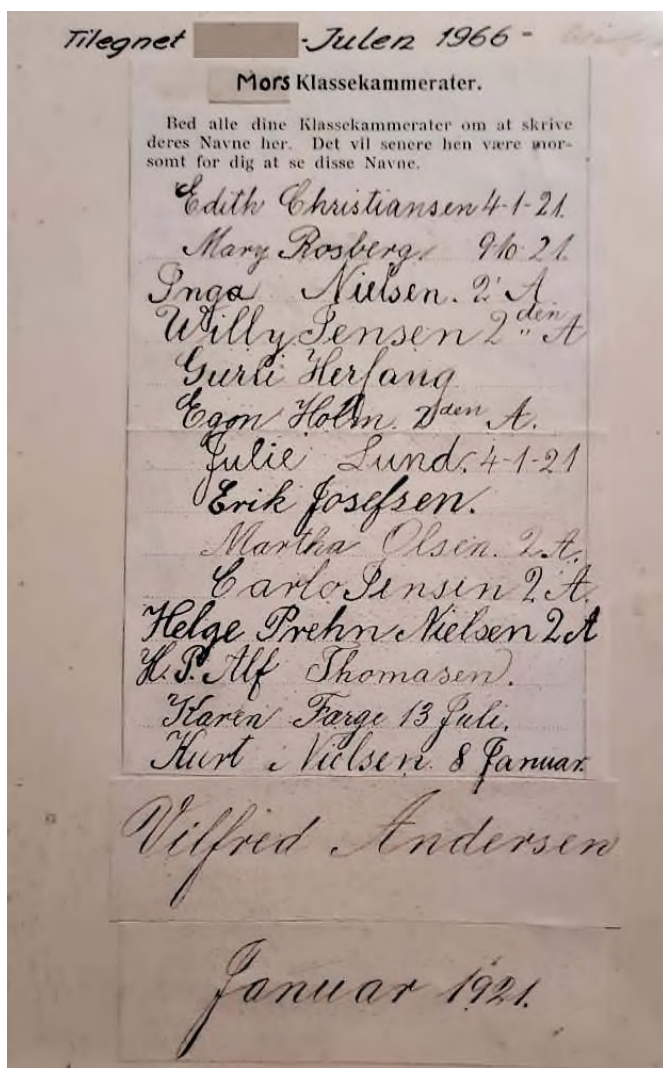 Tilegnet -Julen 1966-
Mors Klassekammerater.
Bed alle dine Klassekammerater om at skrive
deres Navne her. Det vil senere hen være mor-
somt for dig at se disse Navne.
Edith Christiansen 4-1-21.
Mary Rosberg. 9-10-21.
Inga Nielsen. 2' A.
Willy Jensen 2den A
Gurli Herfang
Egon Holm. 2den A.
Julie Lund. 4-1-21
Erik Josefsen.
Martha Olsen. 2 A.
Carlo Jensen 2' A.
Helge Prehn Nielsen 2 A
H. P. Alf Thomasen.
Karen Farge 13 Juli.
Kurt Nielsen. 8 Januar.
Vilfred Andersen
Januar 1921.